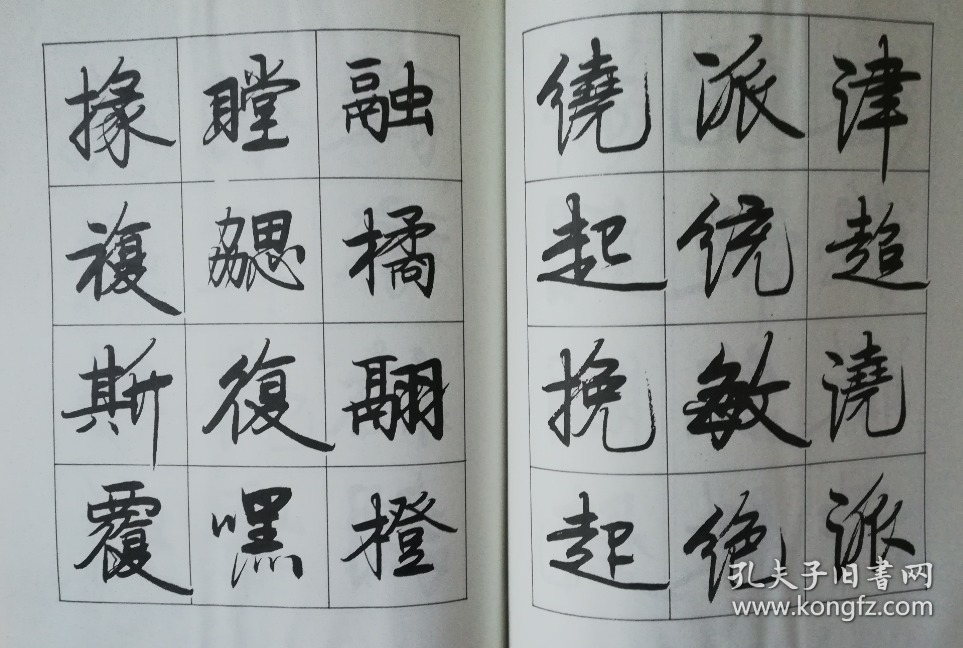 津超澆派
派统敏绝
繞起挽起
融橘翮橙
瞠勰復嘿
掾複斯覆
孔夫子旧书网
www.kongfz.com